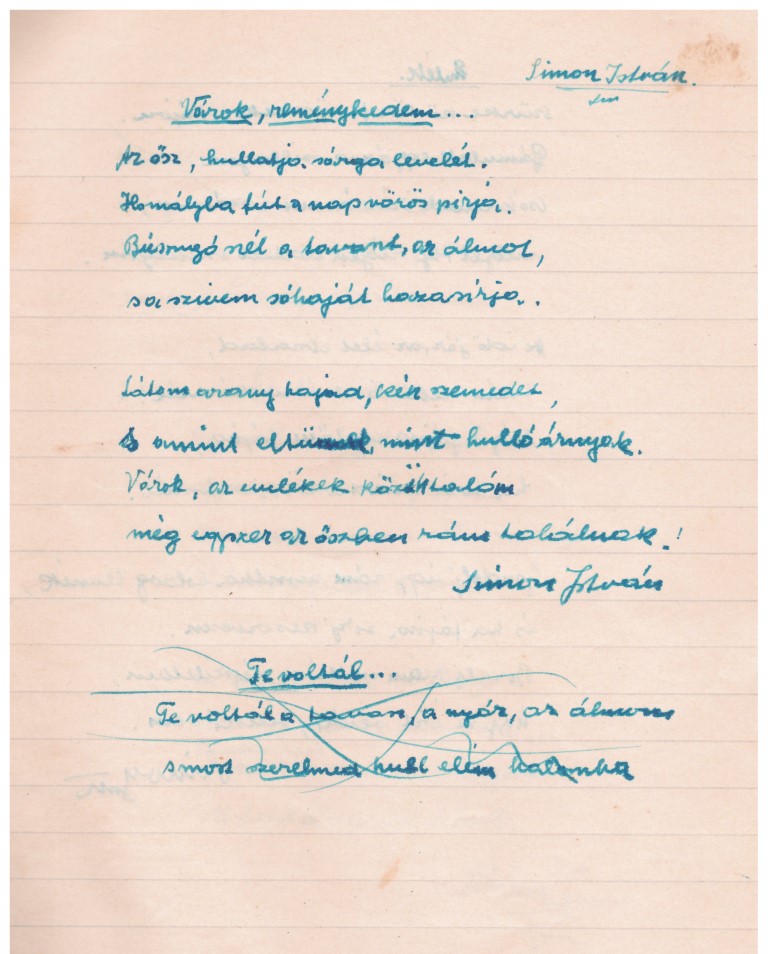 Simon István.
Várok, reménykedem...
Az ősz, hullatja sárga levelét.
Homályba fút a nap vörös pírja.
Búsongó szél a tavaszt, az álmot,
s a szivem sóhaját hazasírja.
Látom arany hajad, kék szemedet,
S amint eltűnik, mint hulló árnyak.
Várok, az emlékek közül talám
még egyszer az őszben rám találnak.!
Simon István
Te voltál...
Te voltál a tavasz, a nyár, az álmom
s most szerelmed hull elém halomba